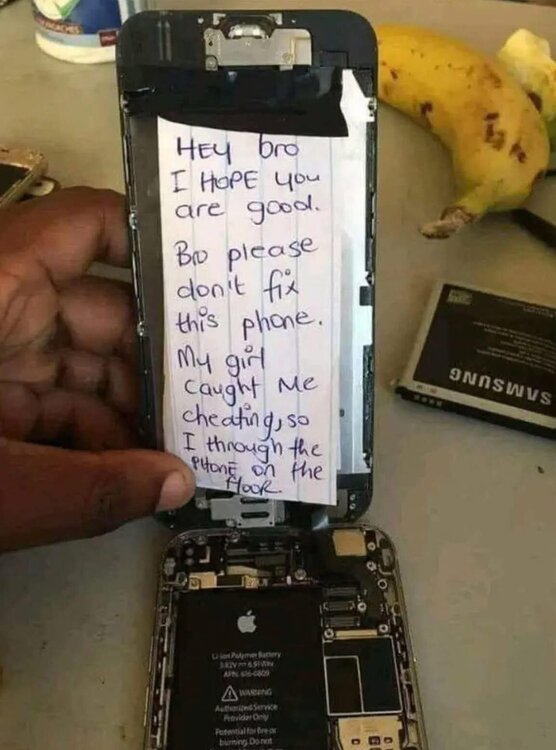 HEY bro
I HOPE you
are good.
Bro please
don't fix
this phone.
My girl
caught Me
cheating, so
I through the
PHONE on the
floor.
SAMSUNG
Li-ion Polymer Battery
WARNING
Authorized Service
Provider Only
Potential for fire or
burning. Do not